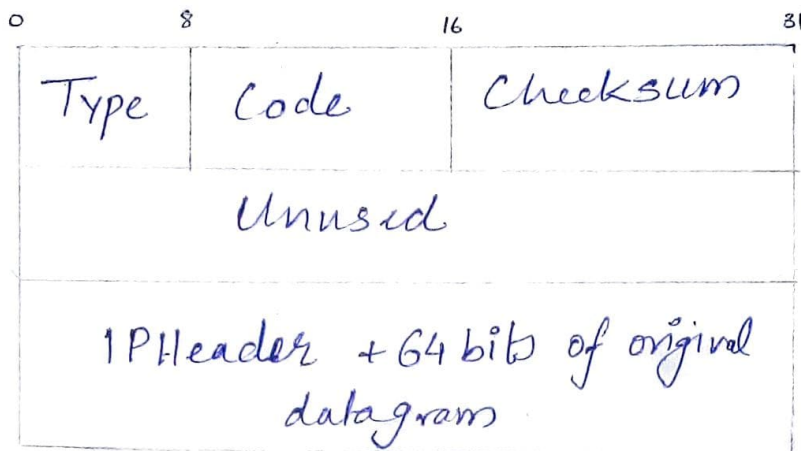 0 8 16 31
Type Code Checksum
Unused
IPHeader + 64 bits of original
datagram